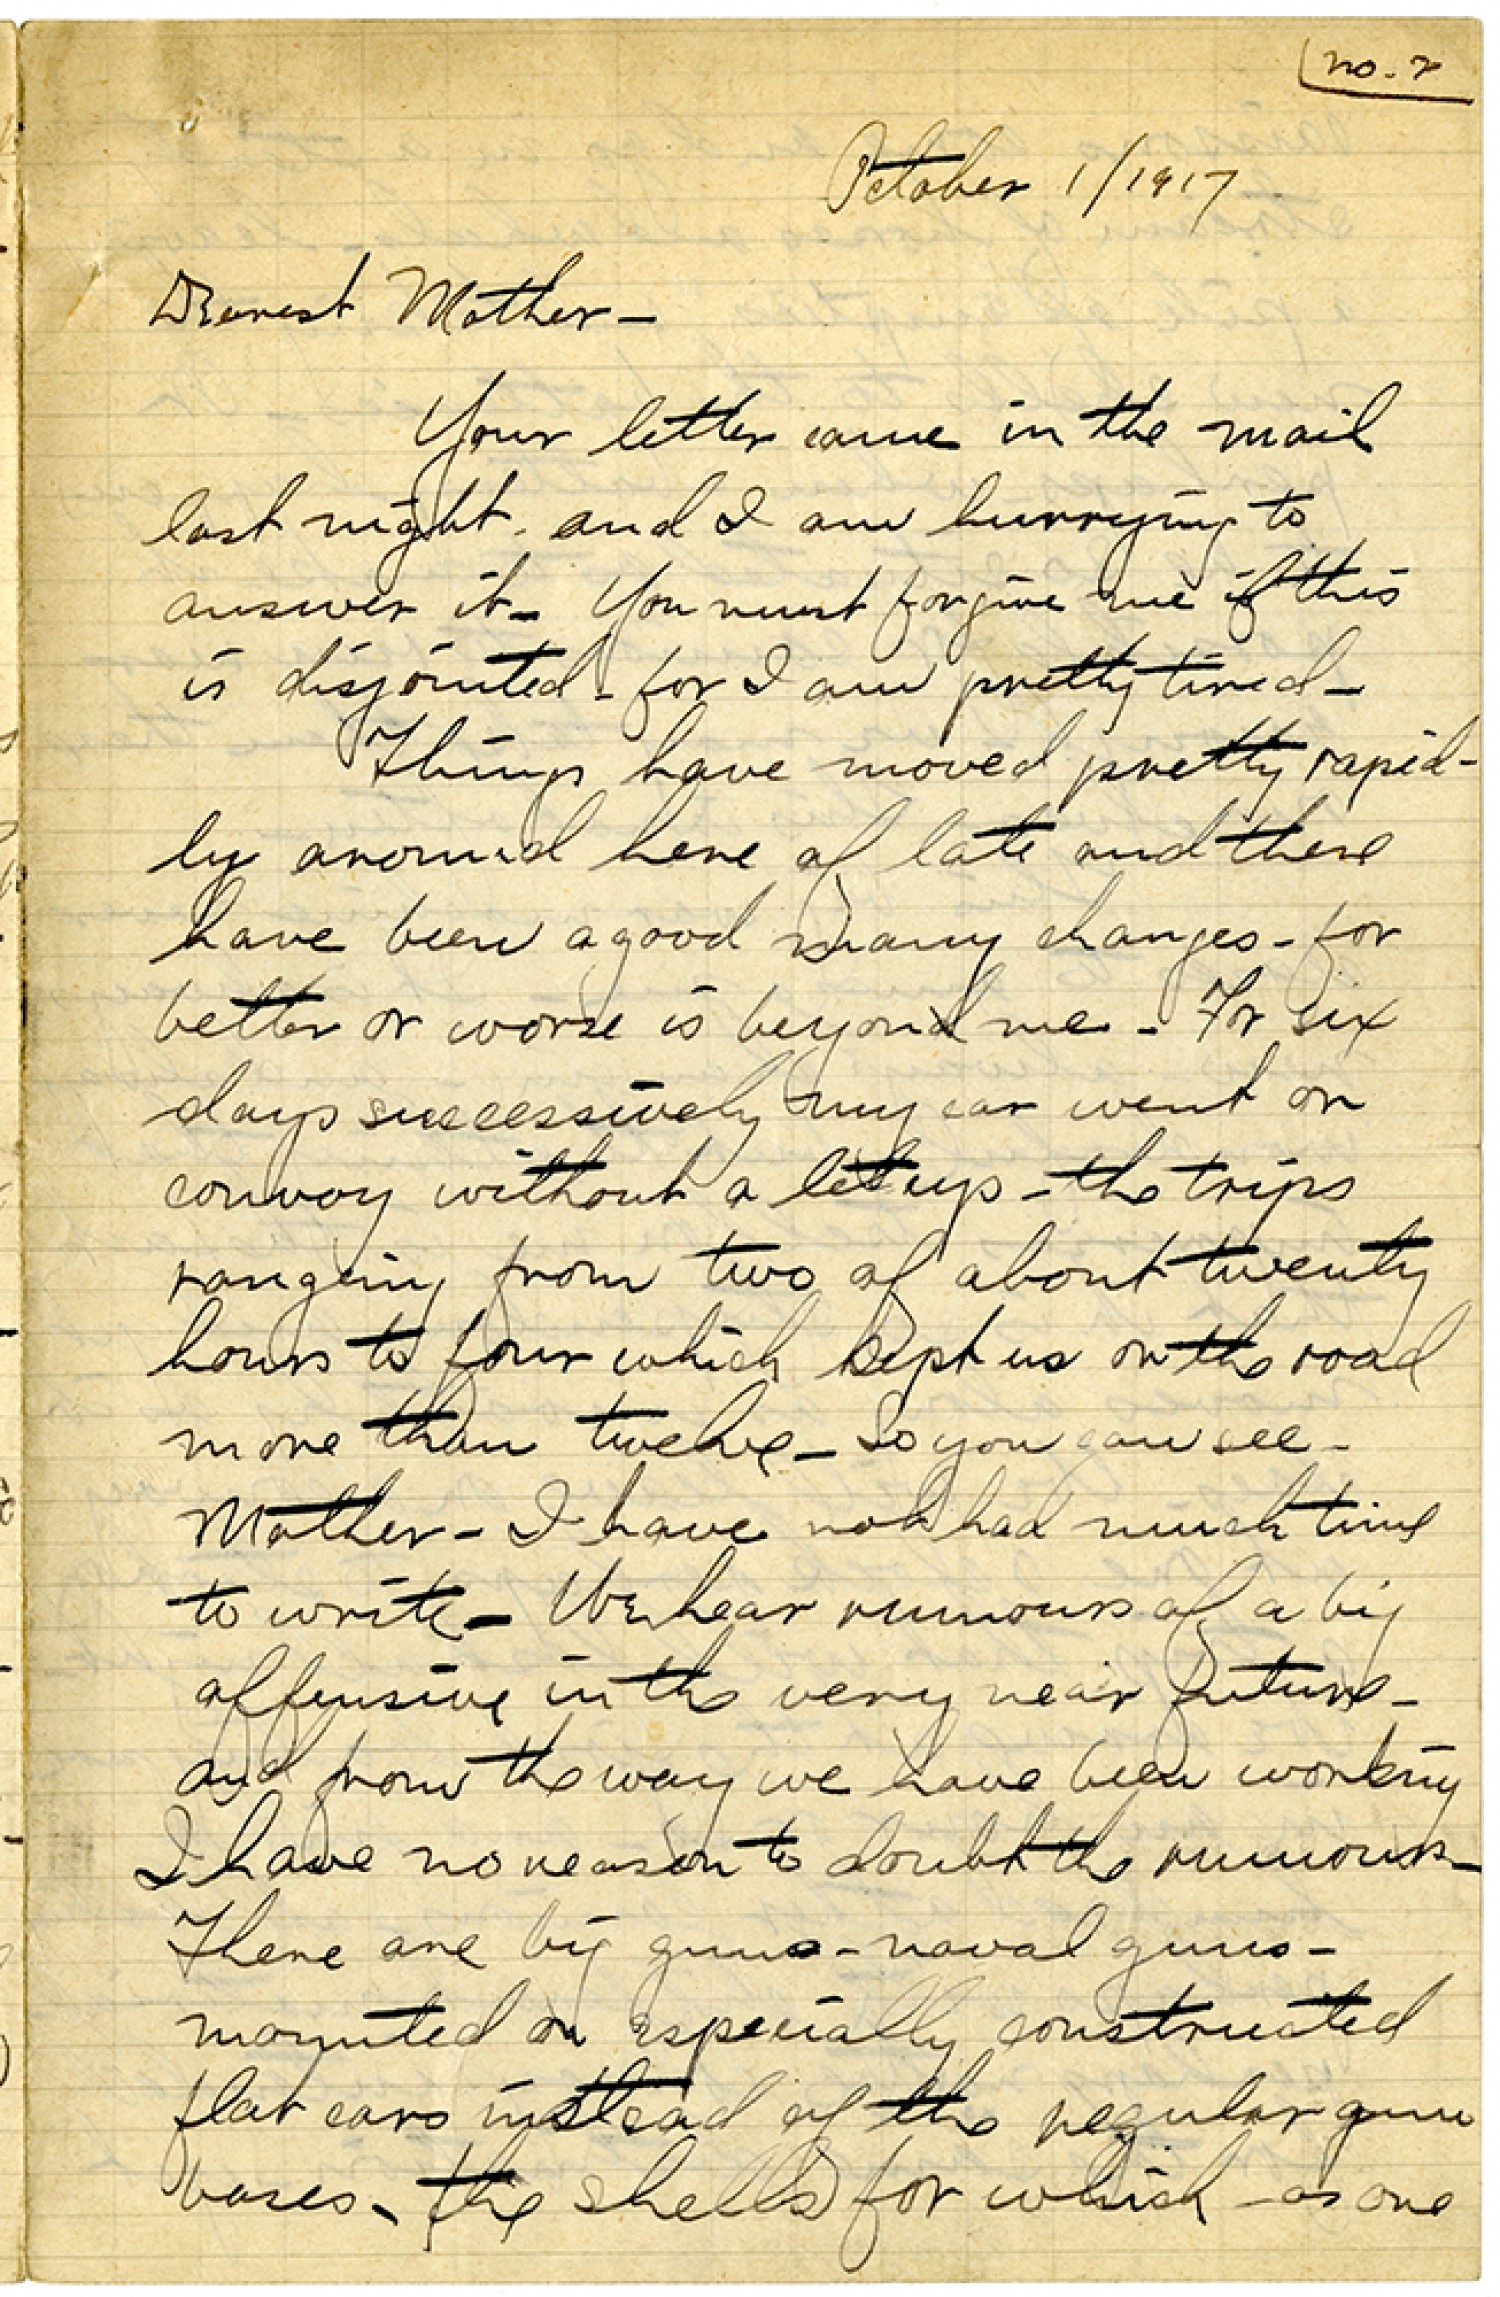 no. 2
October 1/1917
Dearest Mother -
Your letter came in the mail
last night - and I am hurrying to
answer it - You must forgive me if this
is disjointed - for I am pretty tired -
Things have moved pretty rapid-
ly around here of late and there
have been a good many changes - for
better or worse is beyond me - For six
days successively my car went on
convoy without a let up - the trips
ranging from two of about twenty
hours to four which kept us on the road
more than twelve - So you can see -
Mother - I have not had much time
to write - We hear rumours of a big
offensive in the very near future -
and from the way we have been working
I have no reason to doubt the rumours -
There are big guns - naval guns -
mounted on especially constructed
flat cars instead of the regular gun
bases - the shells for which - as one